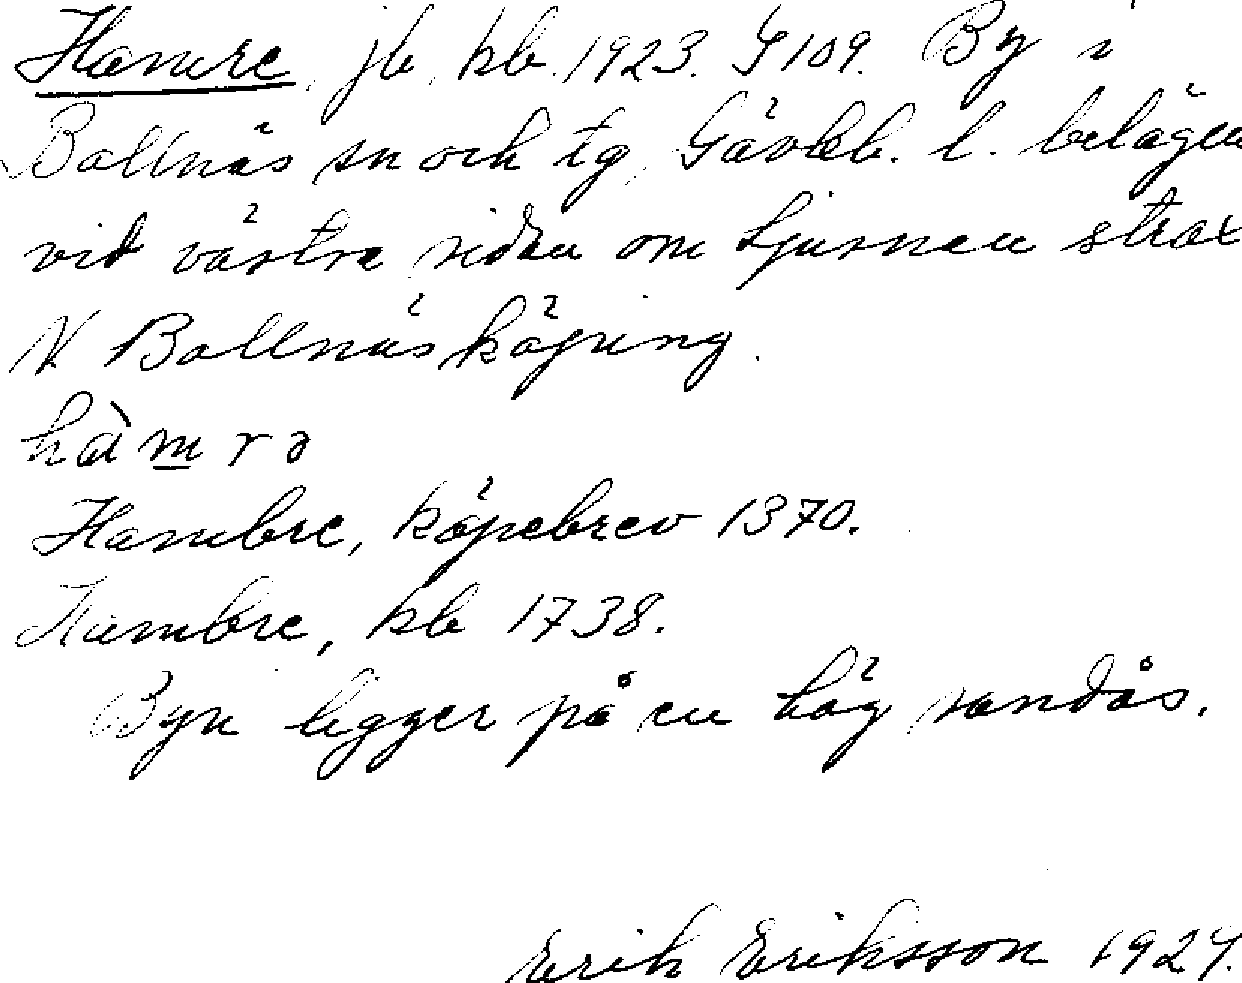 Hamre, jb, kb. 1923. G109. By i
Bollnäs sn och tg, Gävleb. l. belägen
vid västra sidan om Ljusnan strax
N Bollnäs köping.
hàm̲rə
Hambre, köpebrev 1370.
Hambre, kb 1738.
Byn ligger på en hög sandås.
Erik Eriksson 1924.